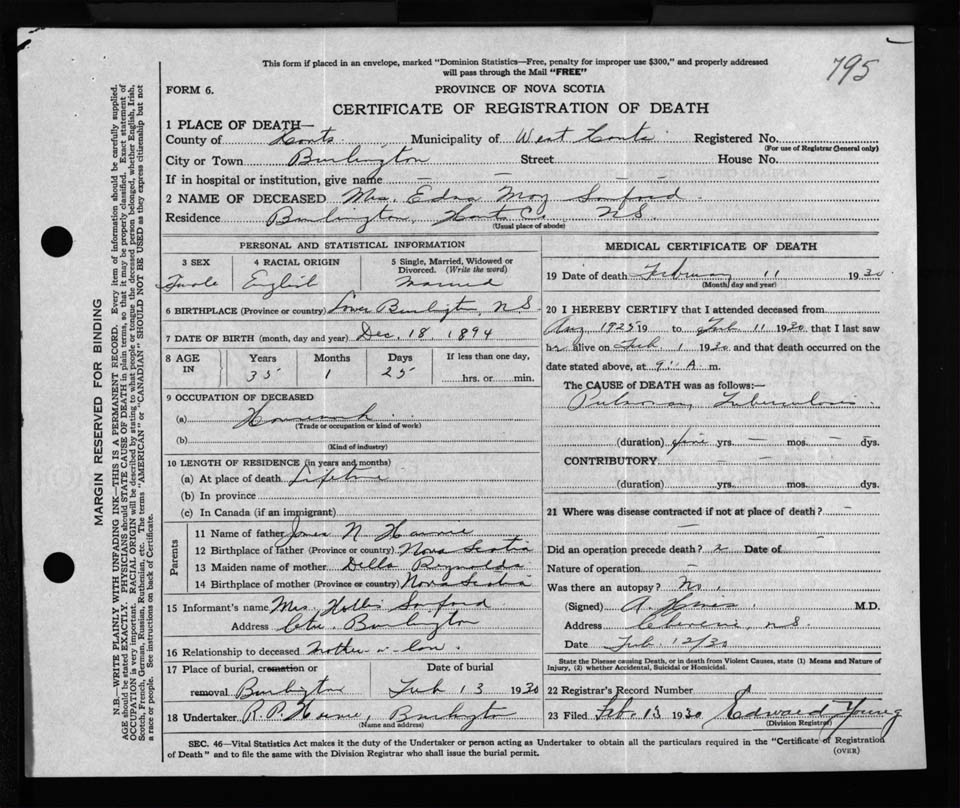 This form if placed in an envelope, marked "Dominion Statistics—Free, penalty for improper use $300," and properly addressed
will pass through the Mail "FREE"
795
FORM 6.
PROVINCE OF NOVA SCOTIA
CERTIFICATE OF REGISTRATION OF DEATH
1 PLACE OF DEATH—
County of Hants Municipality of West Hants Registered No.
(For use of Registrar General only)
City or Town Burlington Street House No.
If in hospital or institution, give name — — —
2 NAME OF DECEASED Mrs. Edna May Sanford
Residence Burlington, Hants Co. N.S.
(Usual place of abode)
PERSONAL AND STATISTICAL INFORMATION
3 SEX 4 RACIAL ORIGIN 5 Single, Married, Widowed or
Divorced. (Write the word)
Female English Married
6 BIRTHPLACE (Province or country) Lower Burlington, N.S.
7 DATE OF BIRTH (month, day and year) Dec. 18. 1894
8 AGE IN Years Months Days If less than one day,
35 1 25 hrs. or min.
9 OCCUPATION OF DECEASED
(a) Housework
(Trade or occupation or kind of work)
(b)
(Kind of industry)
10 LENGTH OF RESIDENCE (in years and months)
(a) At place of death Lifetime
(b) In province
(c) In Canada (if an immigrant)
Parents
11 Name of father James N.
12 Birthplace of father (Province or country) Nova Scotia
13 Maiden name of mother Della Reynolds
14 Birthplace of mother (Province or country) Nova Scotia
15 Informant's name Mrs. Hollis Sanford
Address Burlington
16 Relationship to deceased Mother-in-law.
17 Place of burial, cremation or Date of burial
removal Burlington Feb 13 1930
18 Undertaker R.P. Burlington
(Name and address)
MEDICAL CERTIFICATE OF DEATH
19 Date of death February 11 1930
(Month, day and year)
20 I HEREBY CERTIFY that I attended deceased from
Aug 1925 19 to Feb 11 1930 that I last saw
her alive on Feb 1 1930 and that death occurred on the
date stated above, at 9 A m.
The CAUSE OF DEATH was as follows:—
Pulmonary Tuberculosis
(duration) five yrs. — mos. — dys.
CONTRIBUTORY — —
(duration) yrs. mos. dys.
21 Where was disease contracted if not at place of death? —
—
Did an operation precede death? Date of —
Nature of operation —
Was there an autopsy? No.
(Signed) A. M.D.
Address Cheverie, N.S.
Date Feb. 12/30
State the Disease causing Death, or in death from Violent Causes, state (1) Means and Nature of
Injury, (2) whether Accidental, Suicidal or Homicidal.
22 Registrar's Record Number
23 Filed Feb. 13 1930 Edward Young
(Division Registrar)
SEC. 46—Vital Statistics Act makes it the duty of the Undertaker or person acting as Undertaker to obtain all the particulars required in the "Certificate of Registration
of Death" and to file the same with the Division Registrar who shall issue the burial permit. (OVER)
MARGIN RESERVED FOR BINDING
N.B.—WRITE PLAINLY WITH UNFADING INK—THIS IS A PERMANENT RECORD. Every item of information should be carefully supplied.
AGE should be stated EXACTLY. PHYSICIANS should STATE CAUSE OF DEATH in plain terms, so that it may be properly classified. Exact statement of
OCCUPATION is very important. RACIAL ORIGIN will be described by stating to what people or tongue the deceased person belonged, whether English, Irish,
Scotch, French, German, Russian, Ruthenian, etc. The terms "AMERICAN" or "CANADIAN" SHOULD NOT BE USED as they express citizenship but not
a race or people. See instructions on back of Certificate.